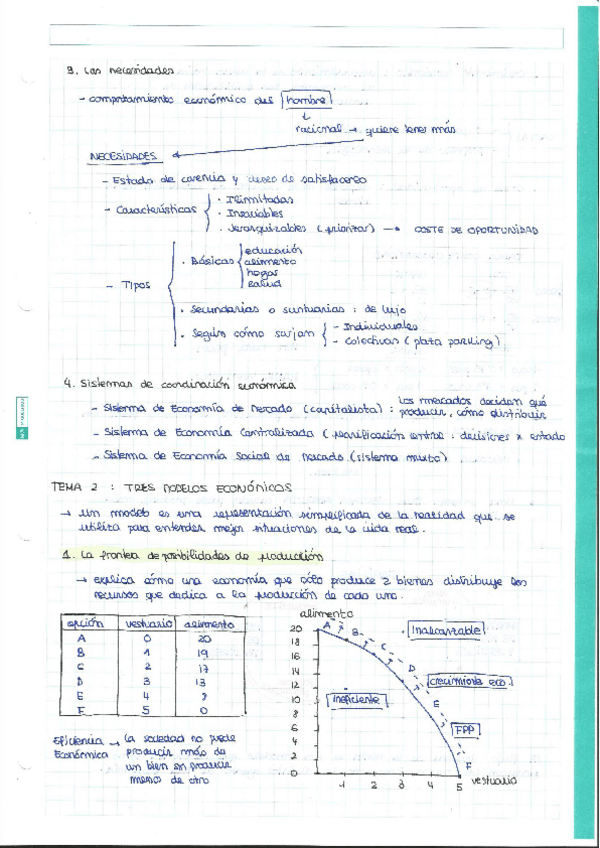 3. Las necesidades
- comportamiento económico del hombre
↓
racional → quiere tener más
NECESIDADES
- Estado de carencia y deseo de satisfacerlo
- Características
· Ilimitadas
· Insaciables
· Jerarquizables (priorizar) → COSTE DE OPORTUNIDAD
- Tipos
· Básicas
educación
alimento
hogar
salud
· Secundarias o suntuarias : de lujo
· Según cómo surjan
- Individuales
- Colectivas (plata parking)
4. Sistemas de coordinación económica
- Sistema de Economía de Mercado (capitalista) : los mercados deciden qué producir, cómo distribuir
- Sistema de Economía Centralizada (planificación central : decisiones x estado
- Sistema de Economía Social de Mercado (sistema mixto)
TEMA 2 : TRES MODELOS ECONÓMICOS
→ un modelo es una representación simplificada de la realidad que se
utiliza para entender mejor situaciones de la vida real.
1. La frontera de posibilidades de producción
→ explica cómo una economía que sólo produce 2 bienes distribuye los
recursos que dedica a la producción de cada uno.
opción vestuario alimento
A 0 20
B 1 19
C 2 17
D 3 13
E 4 8
F 5 0
Eficiencia → la sociedad no puede
Económica producir más de
un bien sin producir
menos de otro
alimento
20
18
16
14
12
10
8
6
4
2
0
1 2 3 4 5
vestuario
A
B
C
D
E
F
Inalcanzable
crecimiento eco
Ineficiente
FPP